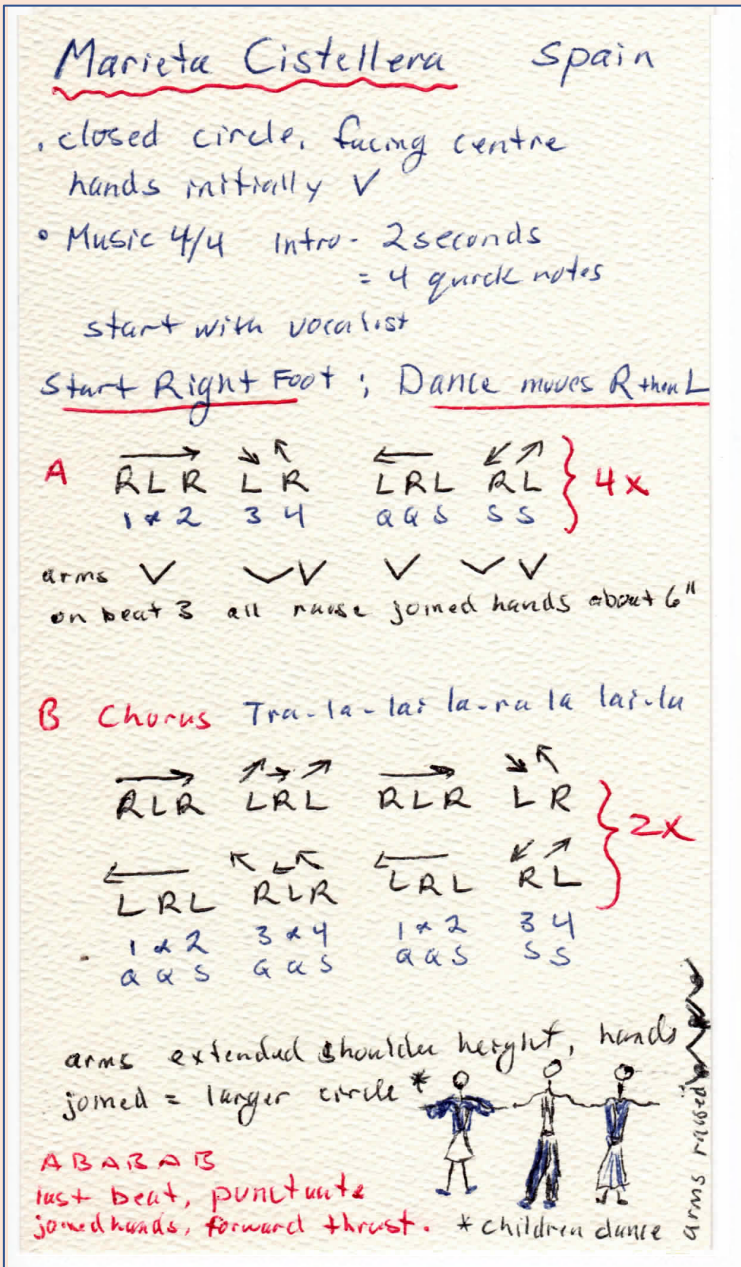 Marieta Cistellera Spain
. closed circle, facing centre
hands initially V
• Music 4/4 Intro - 2 seconds
= 4 quick notes
start with vocalist
Start Right Foot ; Dance moves R then L
A R L R L R L R L R L } 4x
1 & 2 3 4 Q Q S S S
arms V V V V V V
on beat 3 all raise joined hands about 6"
B Chorus Tra-la-lai la-ra la lai-la
R L R L R L R L R L R } 2x
L R L R L R L R L R L
1 & 2 3 & 4 1 & 2 3 4
Q Q S Q Q S Q Q S S S
arms extended shoulder height, hands
joined = larger circle *
arms raised
A B A B A B
last beat, punctuate
joined hands, forward thrust. * children dance